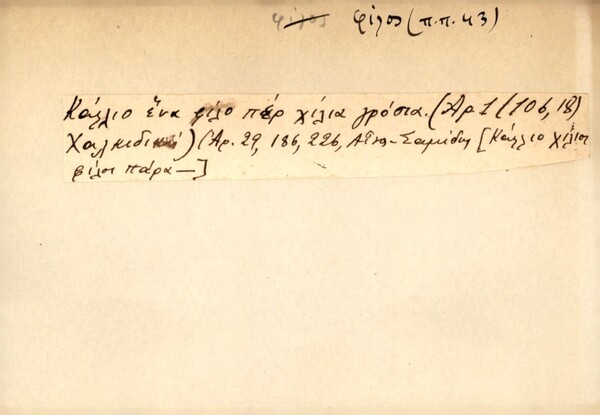 φίλος φίλος (π.π. 43)
Κάλλιο ἕνα φίλο πὲρ χίλια γρόσια. (Αρ 1 (106, 18)
Χαλκιδική) (Αρ. 29, 186, 226, [Κάλλιο χίλιοι
φίλοι πάρα —]